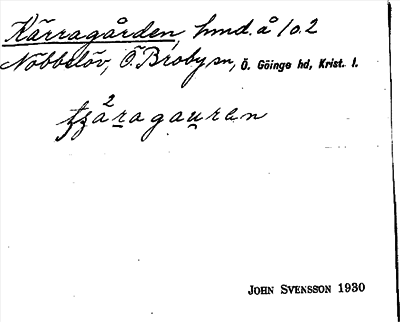 Kärragården, hmd. å 1o.2
Nöbbelöv, Ö. Broby sn, Ö. Göinge hd, Krist. l.
2
ƫʒaragauran
JOHN SVENSSON 1930